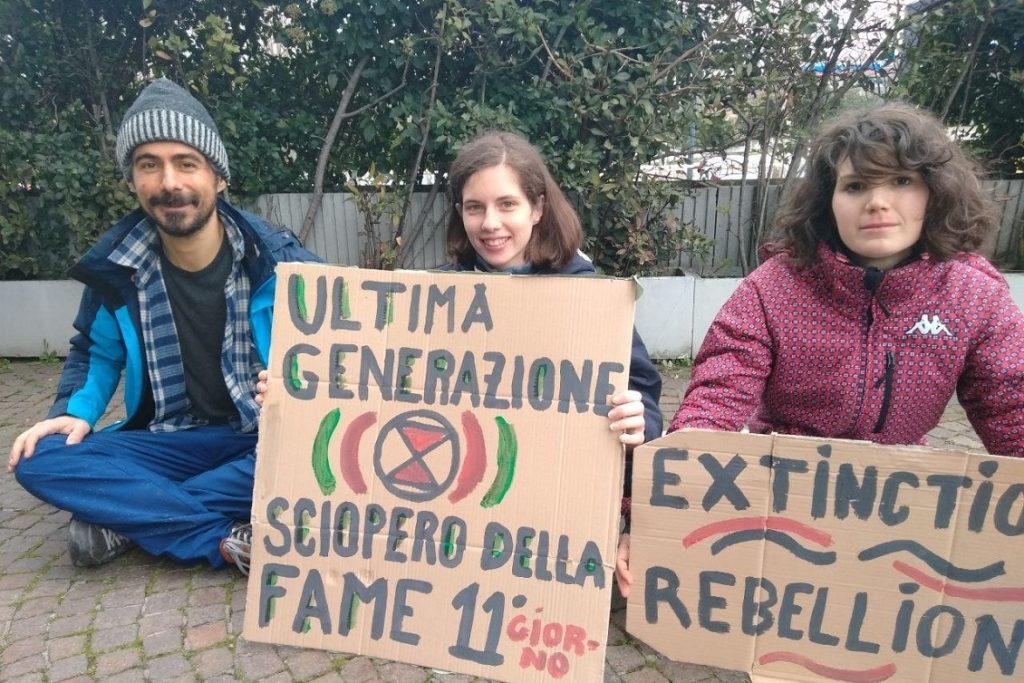 ULTIMA
GENERAZIONE
SCIOPERO DELLA
FAME 11° GIOR-
NO
EXTINCTIO
REBELLION